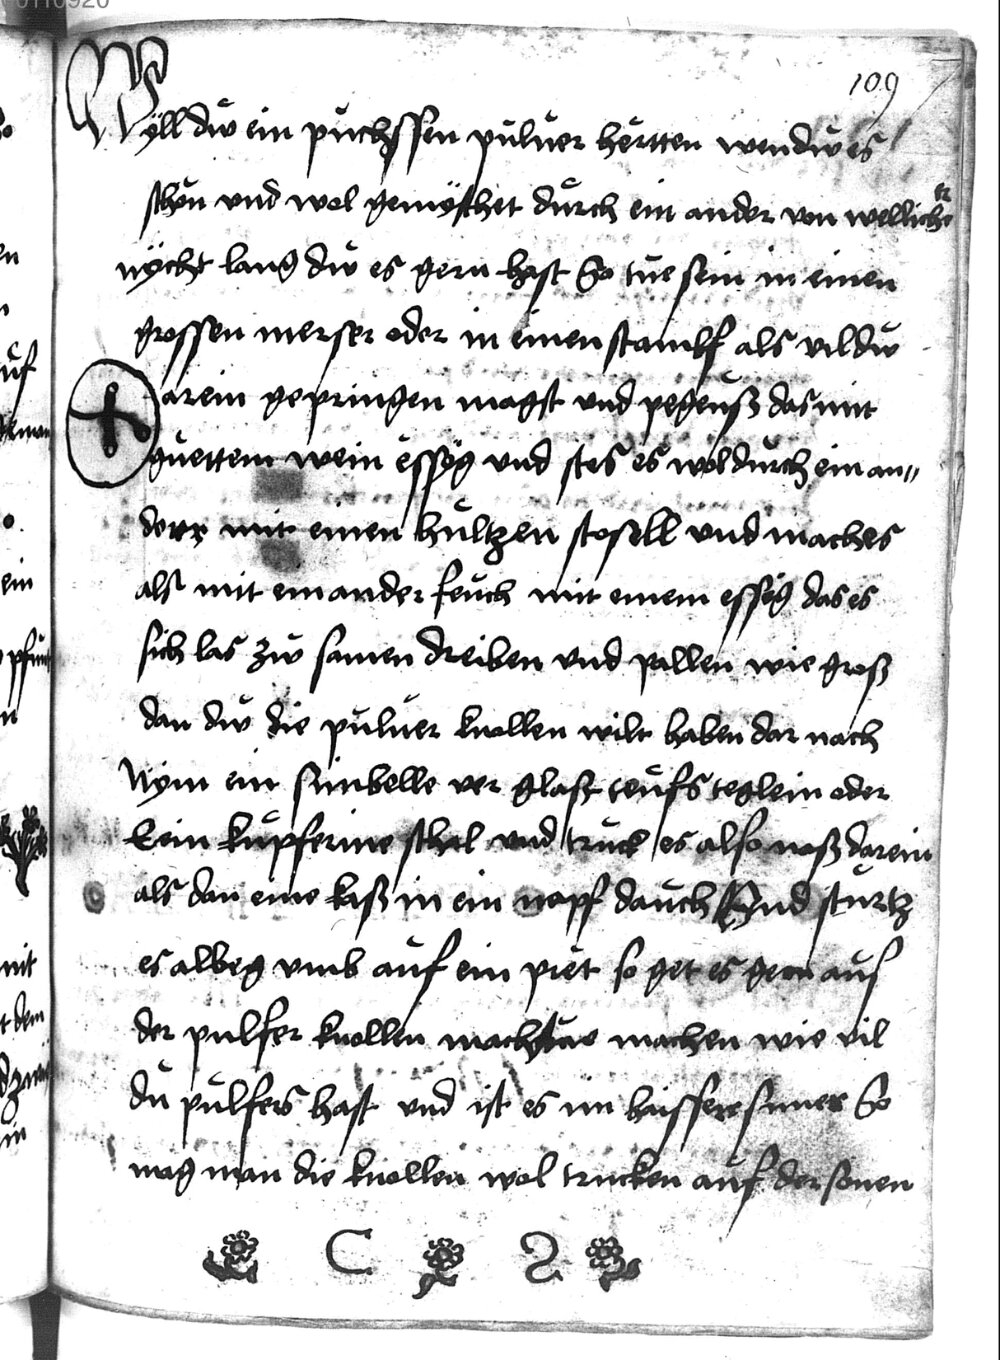 109
Wyll dw ein puchssen puluer hertten wen dw es
schon vnd wol gemyschet durch ein ander von wellicher
nycht lang dw es gern hast So tue sein in einen
grossen merser oder in einen stambf als vil dw
darein gepringen magst vnd pegeuß das mit
guettem wein essyg vnd stos es wol durch ein an„
derr mit einen hultzen stosell vnd mach es
als mit ein ander feuch mit einem essyg das es
sich las zw samen dreiben vnd pallen wie groß
dan dw die puluer knollen wilt haben dar nach
Nym ein sinbelle ver glast teufs teglein oder
kein kupferine schal vnd truck es also naß darein
als dan eine kaß in ein napf dauch Vnd sturtz
es albeg vmb auf ein pret so get es gern auß
der pulfer knollen machstue machen wie vil
du pulfers hast vnd ist es im haisserr sumer So
mag man die knollen wol trucken auf der sonen
C 2